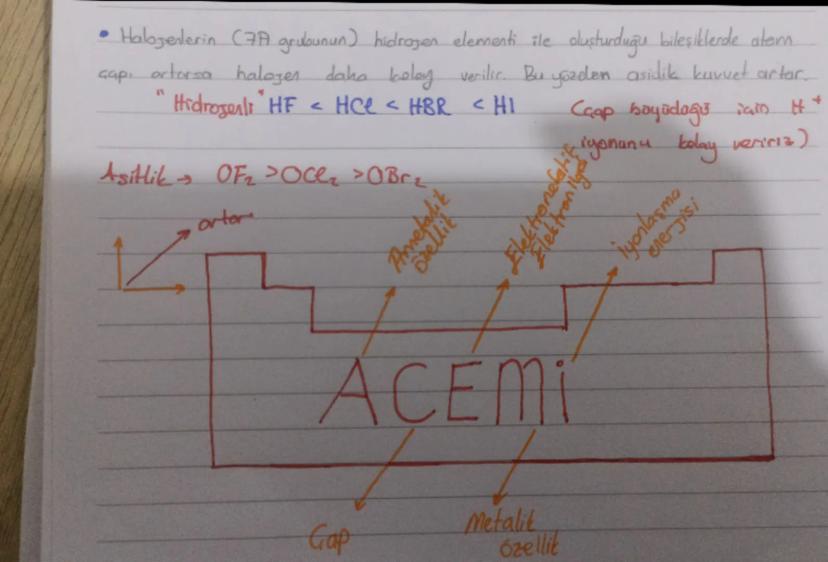 • Halojenlerin (7A grubunun) hidrojen elementi ile oluşturduğu bileşiklerde atom
çapı artarsa halojen daha kolay verilir. Bu yüzden asidik kuvvet artar.
"Hidrojenli" HF < HCl < HBR < HI (Çap büyüdüğü için H+
iyonunu kolay veririz)
Asitlik → OF2 > OCl2 > OBr2
artar
Ametalik
özellik
Elektronegatiflik
Elektron ilgisi
İyonlaşma
enerjisi
ACEMİ
Çap
Metalik
özellik